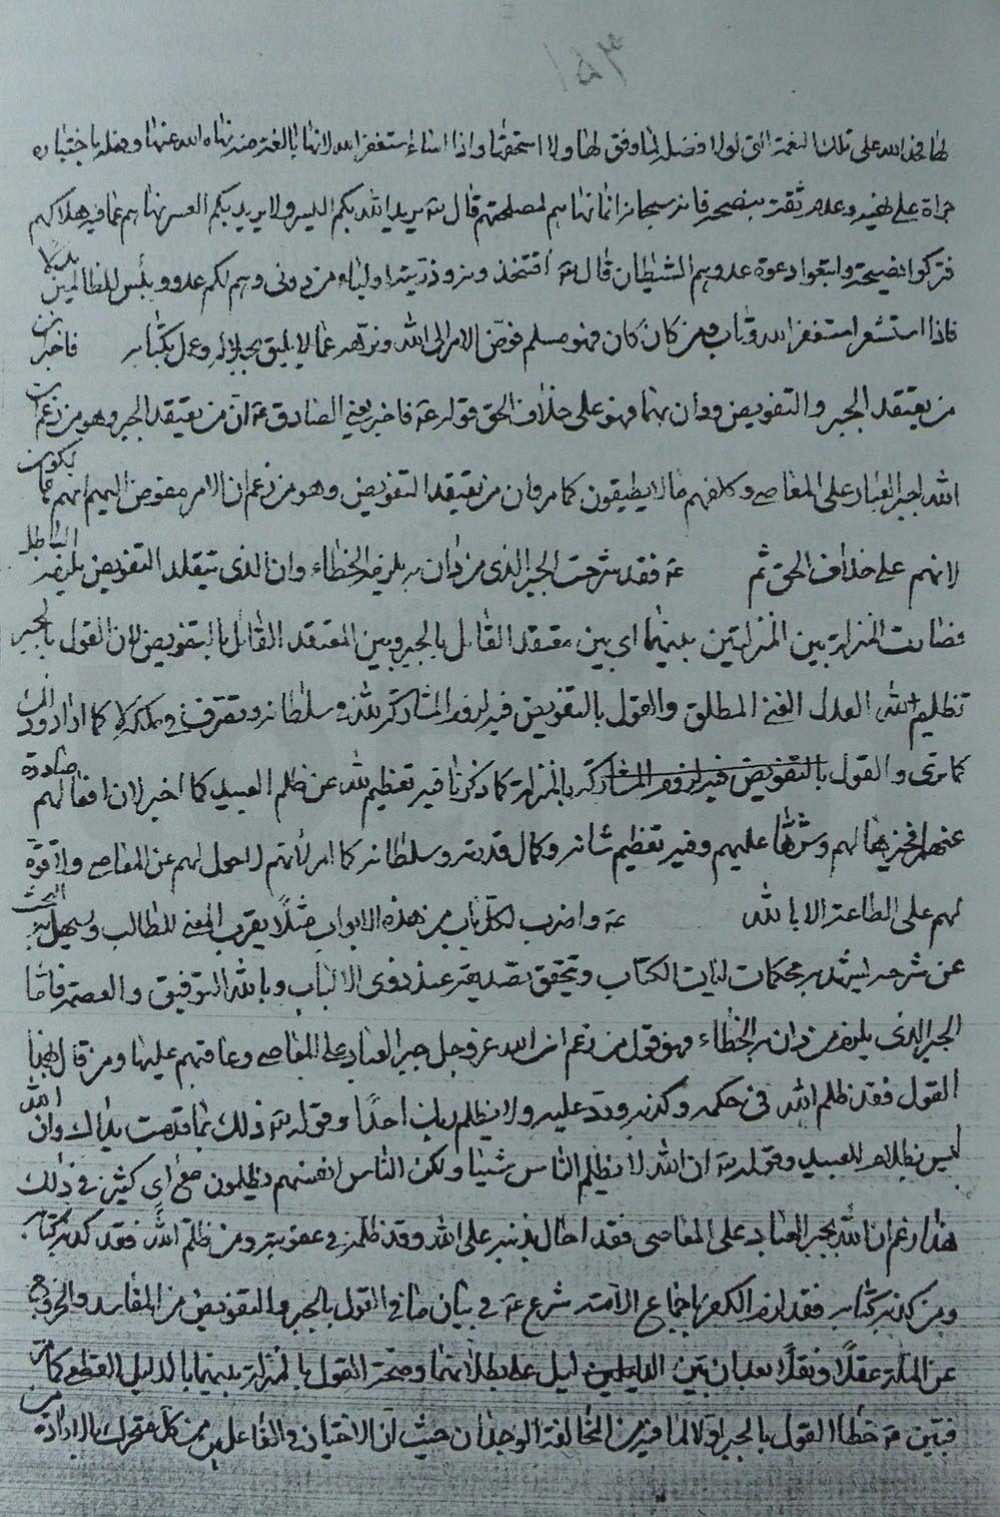 ١٥٣
لها فحمد الله على تلك النعمة التي لولا فضل لما وفق لها ولا استحقها واذا اساء استغفر الله لانها بالغة منه نهاه الله عنها وفعله باختياره
جراة على نفسه وعدم ثقة بنصحه فانه سبحانه انما نهاهم لمصلحتهم قال تع يريد الله بكم اليسر ولا يريد بكم العسر نهاهم عما فيه هلاكهم
فتركوا نصيحته واتبعوا دعوة عدوهم الشيطان قال تع افتتخذونه وذريته اولياء من دوني وهم لكم عدو وبئس للظالمين بدلا
فاذا استشعر استغفر الله وتاب فمن كان كان فهو مسلم فوض الامر الى الله ونزهه عما لا يليق بجلاله وعمل بكتابه فاخبر ان
من يعتقد الجبر والتفويض ودان بهما فهو على خلاف الحق قوله عه فاخبر يعني الصادق عه ان من يعتقد الجبر وهو من زعم ان
الله اجبر العباد على المعاصي وكلفهم ما لا يطيقون كما مر وان من يعتقد التفويض وهو من زعم ان الامر مفوض اليهم انهم يكون
لانهم على خلاف الحق ثم عه فقد شرحت الجبر الذي من دان به يلزمه الخطاء وان الذي يتقلد التفويض يلزمه الباطل
فصارت المنزلة بين المنزلتين بينهما اي بين معتقد القائل بالجبر وبين المعتقد القائل بالتفويض لان القول بالجبر
تظليم الله العدل الغني المطلق والقول بالتفويض فيه لزوم المشاركة لله في سلطانه وتصرف في مملكته كما اراد وذلك
كما ترى والقول بالتفويض فيه لزوم المشاركة بالمنزلة كما ذكرنا فيه تعظيم لله عن ظلم العبيد كما اخبر لان افعالهم صادرة
عنهم فخيرها لهم وشرها عليهم وفيه تعظيم شانه وكمال قدرته وسلطانه كما امر لانهم لا حول لهم عن المعاصي ولا قوة
لهم على الطاعة الا بالله عه واضرب لكل باب من هذه الابواب مثلا يقرب المعنى للطالب ويسهل له البحث
عن شرحه يشهد به محكمات ايات الكتاب وتحقق تصديقه عند ذوي الالباب وبالله التوفيق والعصمة فاما
الجبر الذي يلزم من دان به الخطاء فهو قول من زعم ان الله عز وجل جبر العباد على المعاصي وعاقبهم عليها ومن قال بهذا
القول فقد ظلم الله في حكمه وكذبه ورد عليه ولا يظلم ربك احدا وقوله تع ذلك بما قدمت يداك وان الله
ليس بظلام للعبيد وقوله تع ان الله لا يظلم الناس شيئا ولكن الناس انفسهم يظلمون مع اي كثيرة في ذلك
هذا زعم ان الله يجبر العباد على المعاصي فقد احال بذنبه على الله وقد ظلمه في عقوبته ومن ظلم الله فقد كذب كتابه
ومن كذب كتابه فقد لزمه الكفر باجماع الامة شرع عه في بيان ما في القول بالجبر والتفويض من المفاسد والخروج
عن الملة عقلا ونقلا بعد ان بين الدليل على بطلانهما وصحة القول بالمنزلة بينهما بالدليل القطعي كما مر
فبين عه خطأ القول بالجبر اولا لما فيه من المخالفة الوجدان حيث ان الاختيار في الفاعل من كل متحرك بالارادة من